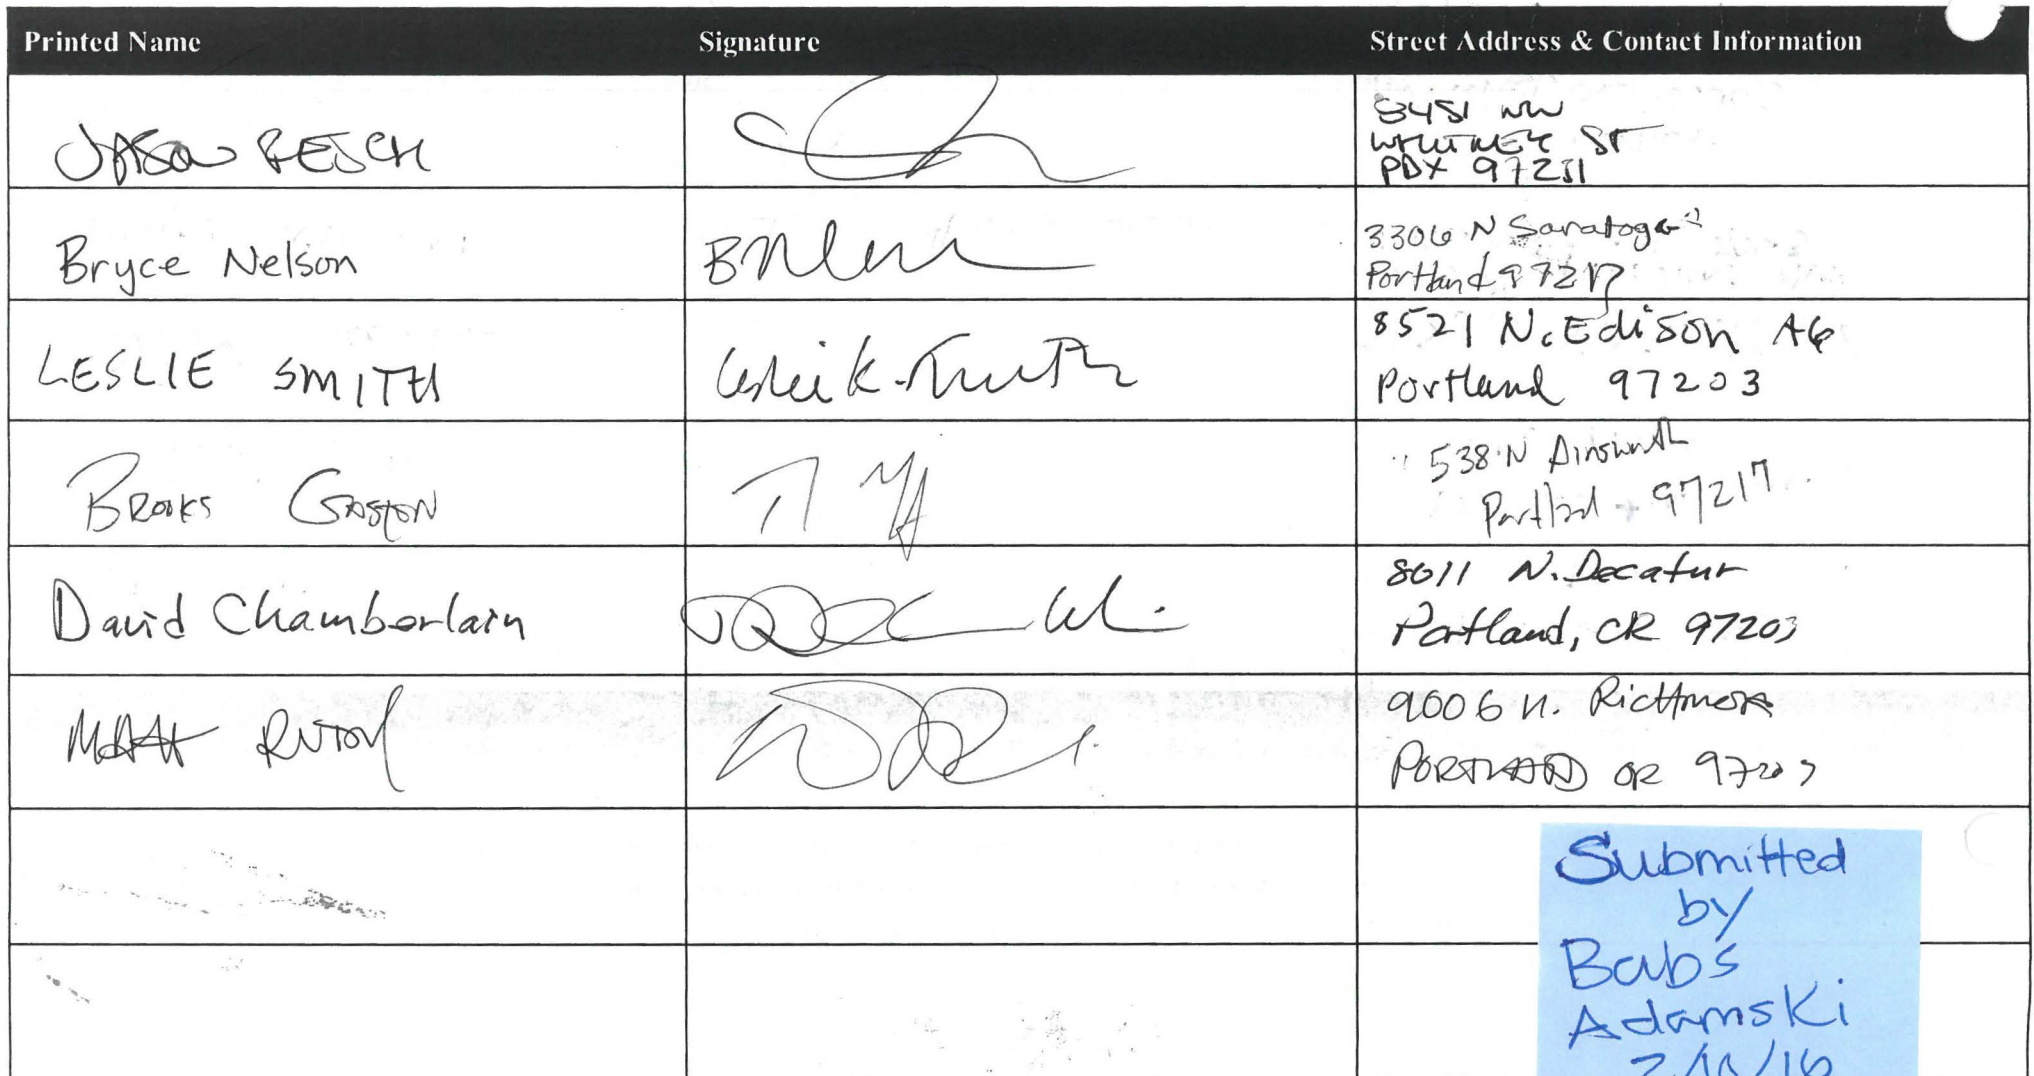 Printed Name Signature Street Address & Contact Information
JASON RESCH
NW
WHITNEY ST
PDX 97231
Bryce Nelson
3306 N Saratoga
Portland 97217
LESLIE SMITH
8521 N. Edison A6
Portland 97203
BROOKS GASTON
538 N Ainsworth
Portland 97217
David Chamberlain
8011 N. Decatur
Portland, OR 97203
MATT
9006 N.
PORTLAND OR 97203
Submitted
by
Babs
Adamski